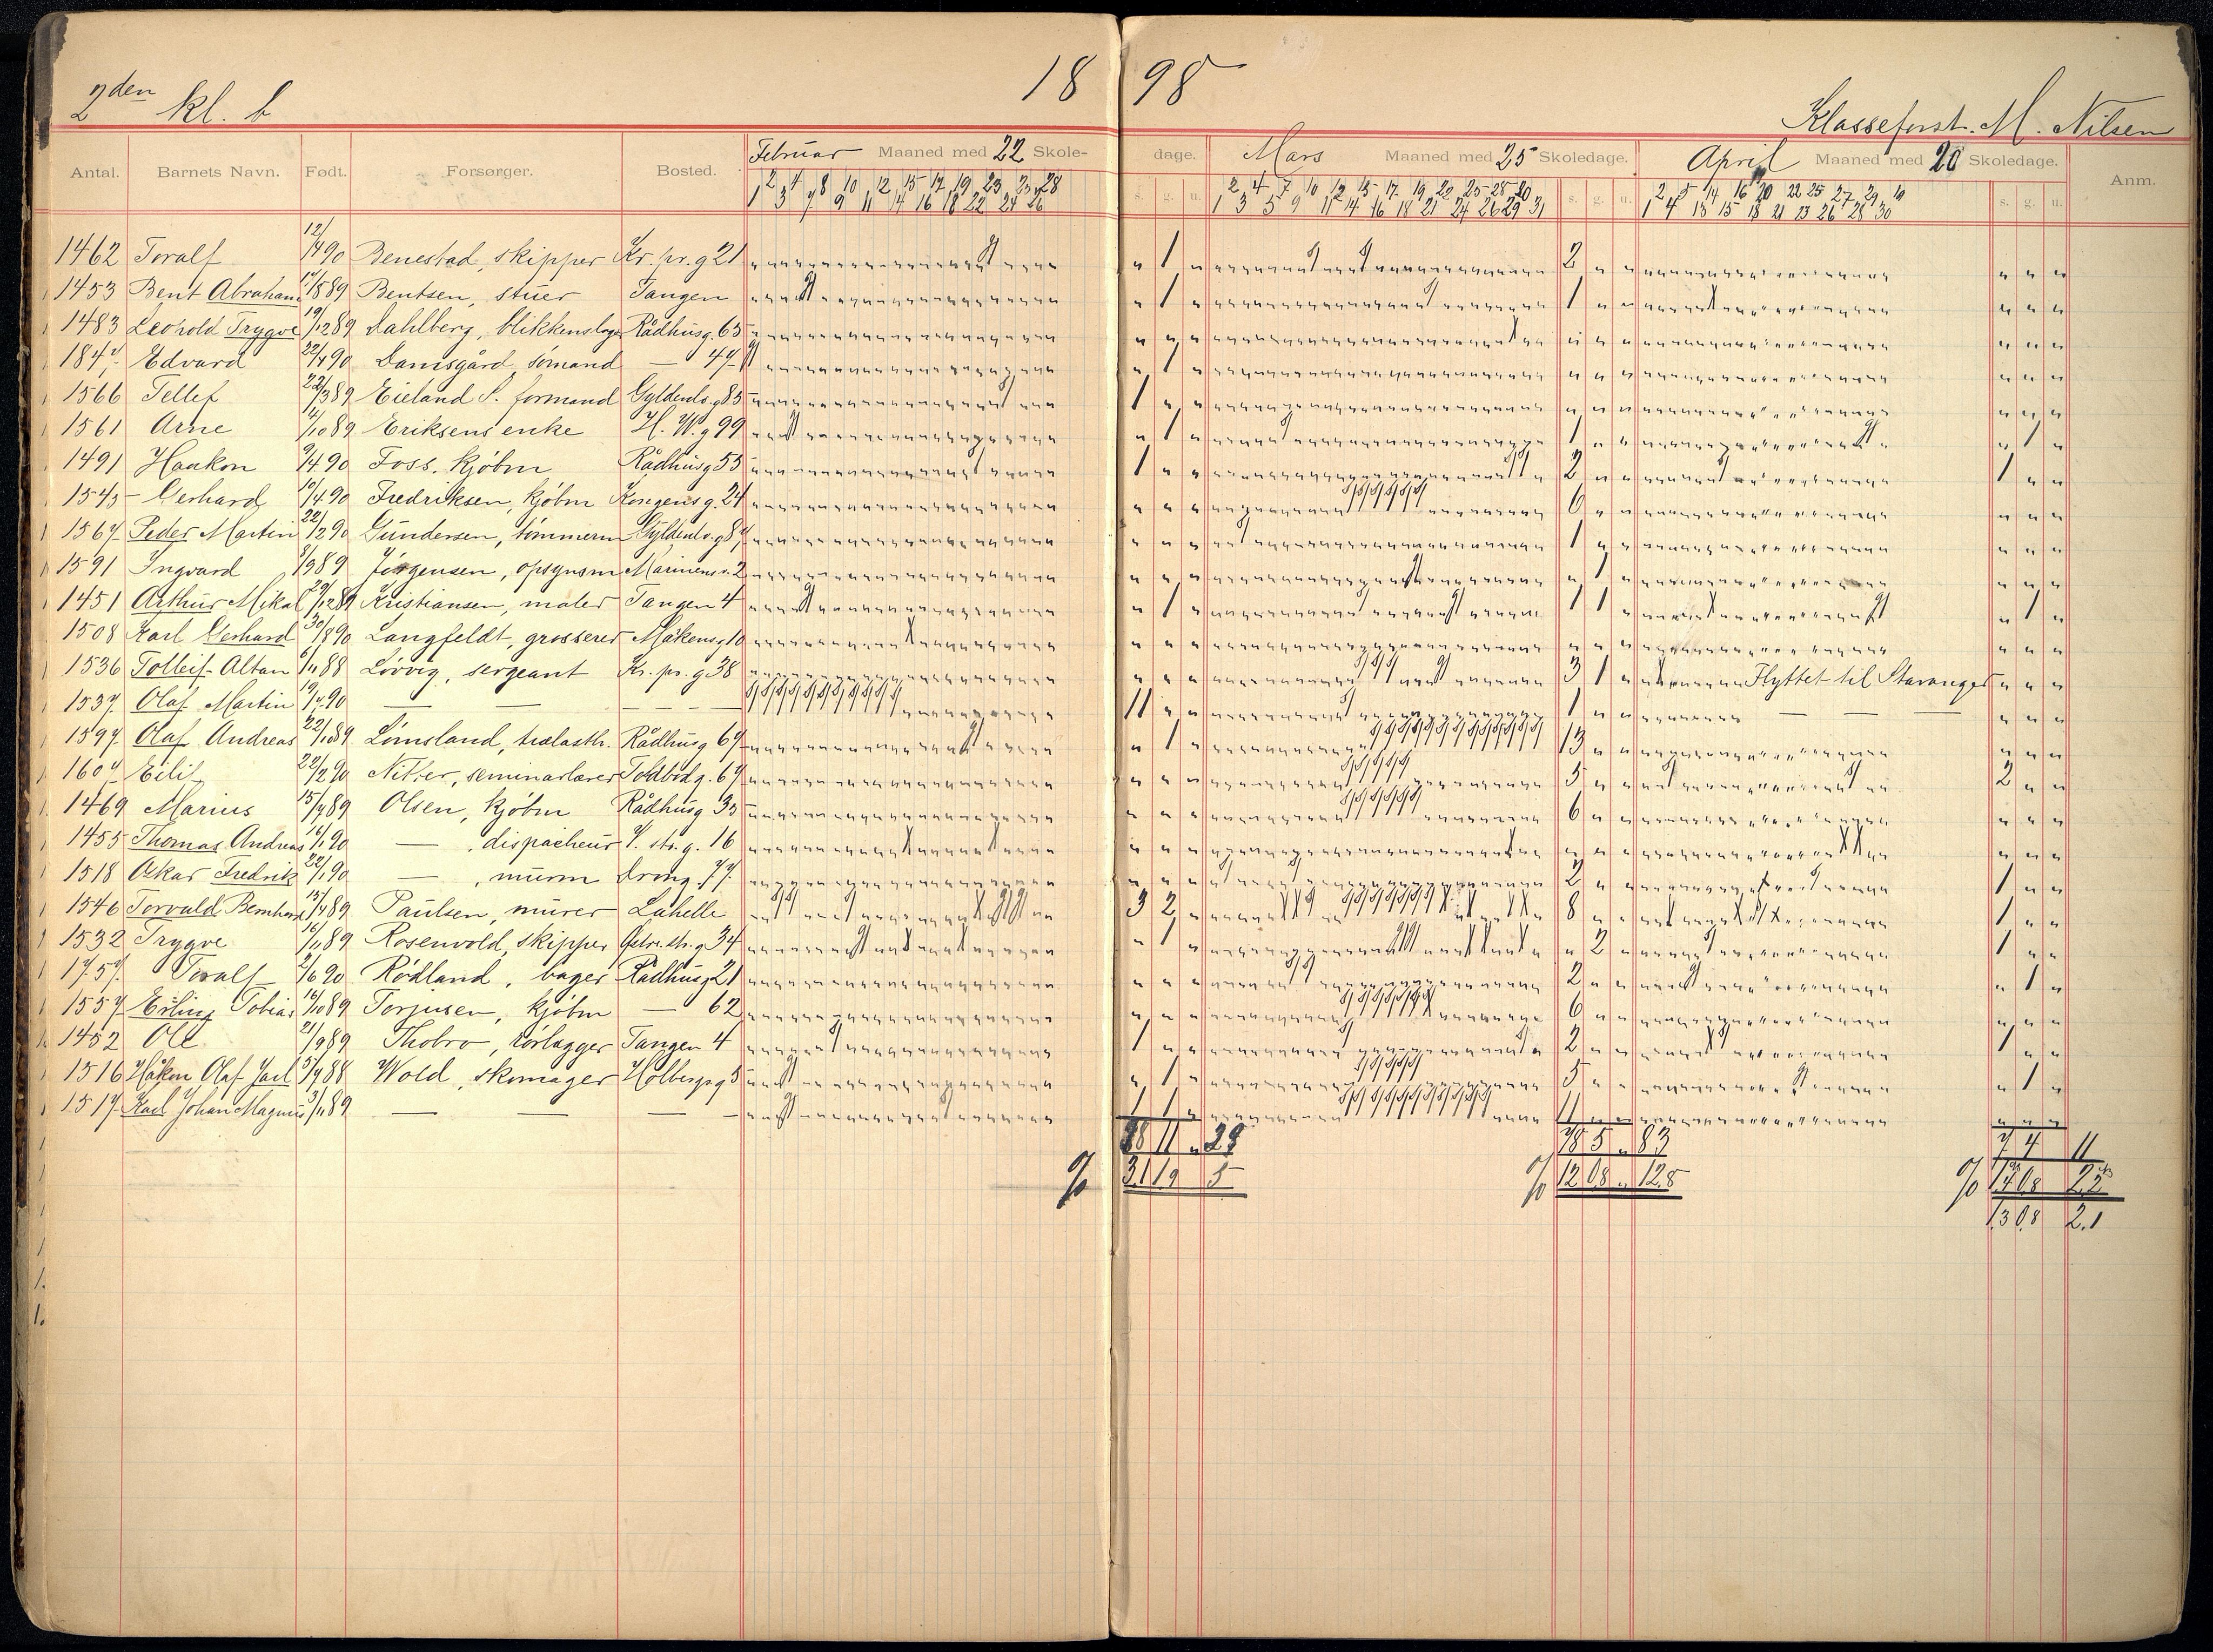 2den kl. b 1898 Klasseforst. M. Nilsen
Antal. Barnets Navn. Født. Forsørger. Bosted. Februar Maaned med 22 Skoledage. Mars Maaned med 25 Skoledage. April Maaned med 20 Skoledage. Anm.
s. g. u. s. g. u. s. g. u.
2 4 8 10 12 15 17 19 23 25 28 2 4 7 10 12 15 17 19 22 25 28 30 2 5 14 16 20 22 25 27 29
1 3 7 9 11 14 16 18 22 24 26 1 3 5 9 11 14 16 18 21 24 26 29 31 1 4 13 15 18 21 23 26 28 30
1462 Toralf 12/4 90 Benestad, skipper Kr. pr. g 21 " 1 " 2 " " " " "
1453 Bent Abraham 89 Bentsen, stuer Tangen " 1 " 1 " " " " "
1483 Leopold Trygve 19/12 89 Dahlberg, blikkenslager Rådhusg. 65
Edvard 22/4 90 Damsgård, sømand — 47 " 1 " " " " " " "
1566 Tellef 22/3 89 Eieland S. formand Gyldenlv. g 85 1 " " " " " " " "
1561 Arne 4/10 89 Eriksens enke H. W. g 99 " 1 " 1 " " " 1 "
1491 Haakon 9/4 90 Foss, kjøbm Rådhusg 55 1 " " 2 " " 1 " "
1545 Gerhard 10/4 90 Fredriksen, kjøbm Kongensg. 24 " " " 6 " " " " "
1567 Peder Martin 22/2 90 Gundersen, tømmerm Gyldenlv. g 87 " " " 1 " " " " "
1591 Ingvard 3/9 89 Jørgensen, opsynsm Marinens v. 2 " " " " 1 " " " "
1451 Arthur Mikal 29/12 89 Kristiansen, maler Tangen 4 " 1 " 1 1 " " 1 "
1508 Karl Gerhard 30/8 90 Langfeldt, grosserer Måkensg 10 " " " " " " " " "
1536 Tolleif Altan 6/11 88 Løvvig, sergeant Kr. pr. g 38 " " " 3 1 " Flyttet til Stavanger " " "
1537 Olaf Martin 19/4 90 — — — — — 11 " " 1 " " — — — " " "
1597 Olaf Andreas 22/10 89 Lømsland, trælasth. Rådhusg 67 " 1 " 13 " " " " "
1607 Eilif 22/2 90 Nitter, seminarlærer Toldbodg. 67 " " " 5 " " 2 " "
1469 Marius 15/7 89 Olsen, kjøbm Rådhusg 35 " " " 6 " " " " "
1455 Thomas Andreas 16/1 90 — , dispacheur V. str. g. 16 " " " " " " " " "
1518 Oskar Fredrik 22/1 90 — , murm Drong. 77 " " " 2 " " 1 " "
1546 Torvald Bernhard 15/4 89 Paulsen, murer Lahelle 3 2 " 8 " " 1 " "
1532 Trygve 16/11 89 Rosenvold, skipper Østre str. g 34 " 1 " " 2 " 1 " "
1757 Toralf 2/6 90 Rødland, bager Rådhusg 21 " " " 2 " " " 1 "
1557 Erling Tobias 16/10 89 Torjusen, kjøbm — 62 " " " 6 " " " " "
1452 Ole 21/9 89 Thobro, rørlægger Tangen 4 1 " " 2 " " 1 " "
1516 Håkon Olaf Jarl 5/7 88 Wold, skomager Holbergsg 5 " 1 " 5 " " " 1 "
1517 Karl Johan Magnus 3/11 89 — — — — 1 1 " 11 " " " " "
18 11 " 29 78 5 " 83 7 4 11
% 3.1 1.9 5 % 12 0.8 " 12.8 % 1.4 0.8 2.2
1.3 0.8 2.1